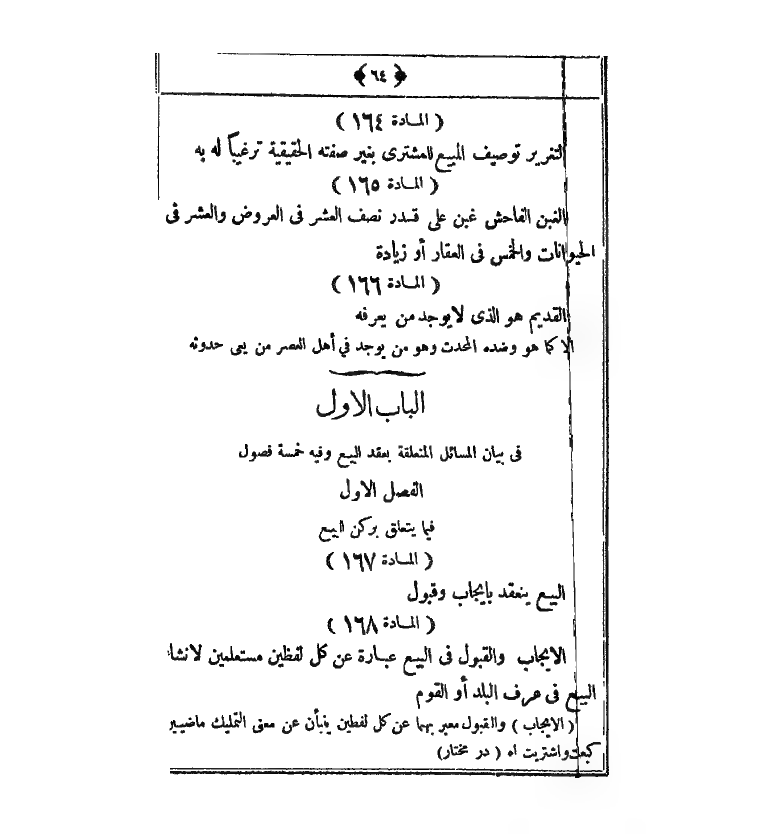 ﴿ ٦٤ ﴾
( المادة ١٦٤ )
التغرير توصيف المبيع للمشترى بغير صفته الحقيقية ترغيباً له به
( المادة ١٦٥ )
الغبن الفاحش غبن على قدر نصف العشر فى العروض والعشر فى
الحيوانات والخمس فى العقار أو زيادة
( المادة ١٦٦ )
القديم هو الذى لا يوجد من يعرفه
الا كما هو وضده المحدث وهو من يوجد في أهل العصر من يعى حدوثه
الباب الاول
فى بيان المسائل المتعلقة بعقد البيع وفيه خمسة فصول
الفصل الاول
فيما يتعلق بركن البيع
( المادة ١٦٧ )
البيع ينعقد بإيجاب وقبول
( المادة ١٦٨ )
الايجاب والقبول فى البيع عبارة عن كل لفظين مستعلمين لانشاء
البيع فى عرف البلد أو القوم
( الايجاب ) والقبول معبر بهما عن كل لفظين ينبأن عن معنى التمليك ماضيين
كبعت واشتريت اه ( در مختار)